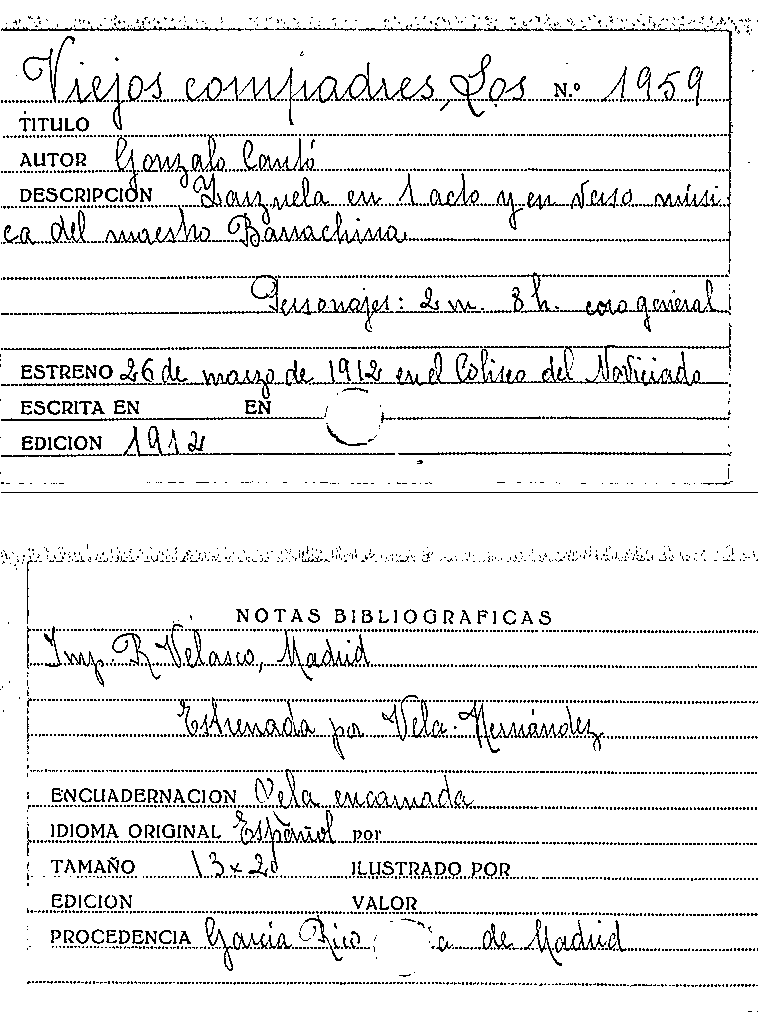 Viejos compadres, Los N.º 1959
TITULO
AUTOR Gonzalo Cantó
DESCRIPCIÓN Zarzuela en 1 acto y en verso músi
ca del maestro Barrachina
Personajes: 2 m. 8 h. coro general
ESTRENO 26 de marzo de 1912 en el Coliseo del Noviciado
ESCRITA EN EN
EDICION 1912
NOTAS BIBLIOGRAFICAS
Imp. R. Velasco, Madrid
Estrenada por Vela-Hernández
ENCUADERNACION Vela encarnada
IDIOMA ORIGINAL Español por
TAMAÑO 13x20 ILUSTRADO POR
EDICION VALOR
PROCEDENCIA García Rico de Madrid